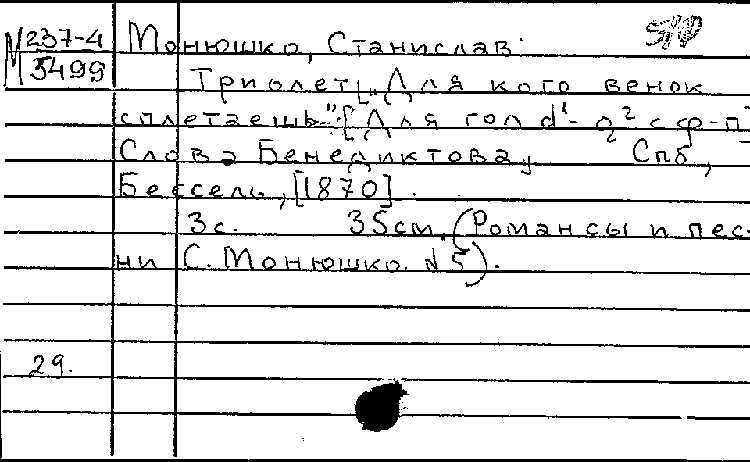 М 237-4
М 3499
Монюшко, Станислав.
Триолет. „Для кого венок
сплетаешь". [Для гол d¹- g² с ф-п]
Слова Бенедиктова. Спб,
Бессель, [1870].
3с. 35см. (Романсы и пес-
ни С. Монюшко. №5).
29.